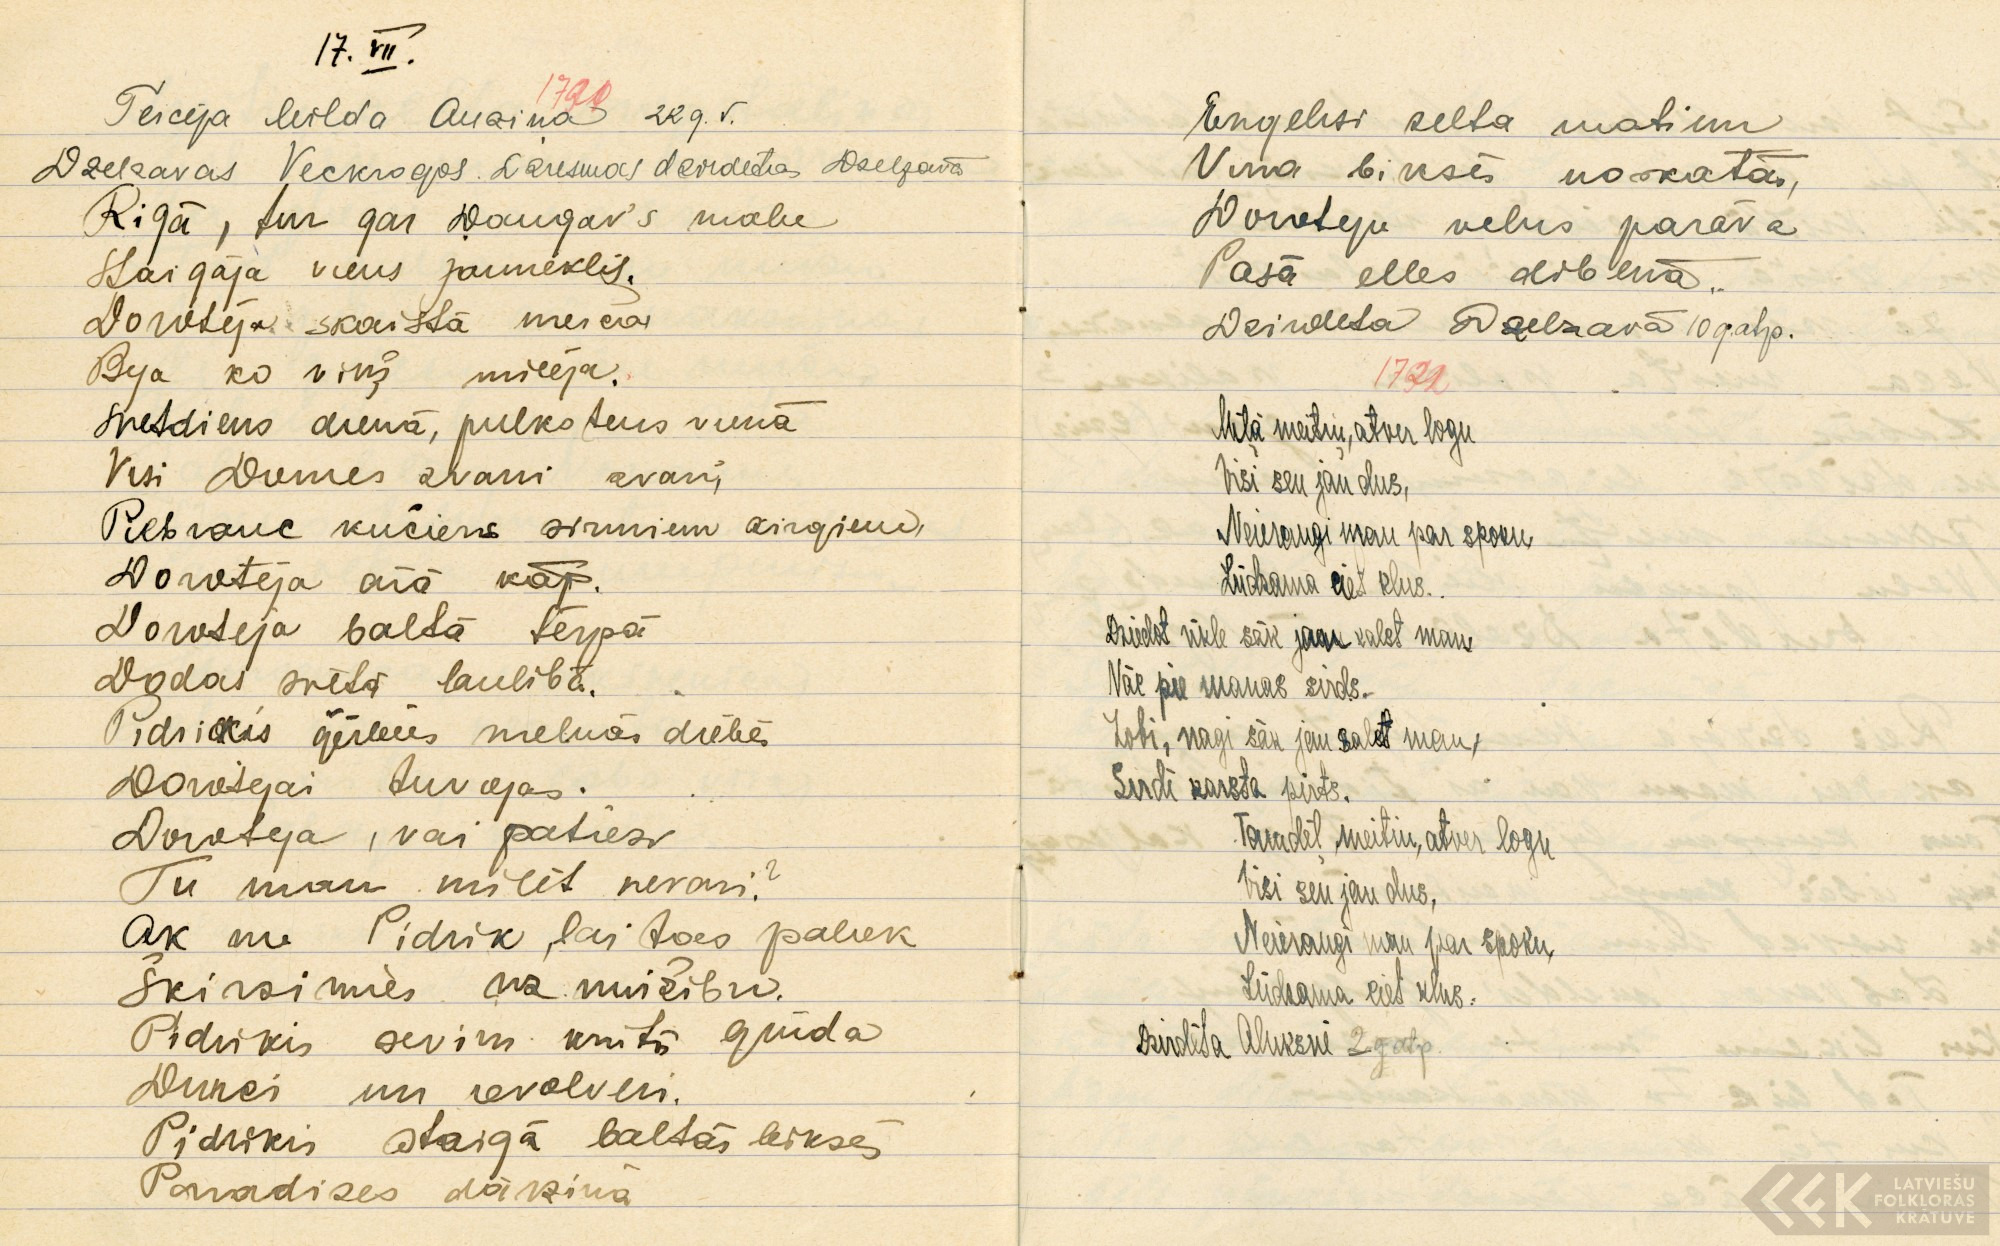 17. VII.
1720
Teicēja Milda Auziņa 22 g. v.
Dzelzavas Veckrogos. dzirdēta Dzelzavā
Rīgā, tur gar Daugav's malu
Staigāja viens jauneklis.
Doroteja skaistā meiča
Bija ko viņš milēja.
Svetdiens dienā, pulkstens vienā
Visi Domes zvani zvan,
Piebrauc kučiers sirmiem zirgiem,
Doroteja ārā kāp.
Doroteja baltā tērpā
Dodas svētā laulibā.
Pidriķis ģērbies melnās drēbēs
Dorotejai tuvojas.
Doroteja, vai patiesi
Tu man milēt nevari?
Ak nē Pidrik, lai tas paliek
Šķirsimies uz mūžibu.
Pidriķis sevim krūtīs grūda
Dunci un revolveri.
Pidriķis staigā baltās biksēs
Paradizes dārziņā
Engelīši zelta matiem
Viņa biksēs noskatās,
Doroteju velns parāva
Pašā elles dibenā.
Dzirdēta Dzelzavā 10 g. atp.
1721
Mīļā meitiņ, atver logu
Visi sen jau dus,
Neieraugi man par spoku
Lūdzama ciet klus.
Dziedot rīkle sāk jau kalst man
Nāc pie manas sirds.
Zobi, nagi sāk jau salst man,
Sirdī karsta pirts.
Tamdēļ, meitiņ, atver logu
Visi sen jau dus,
Neieraugi man par spoku,
Lūdzama ciet klus.
Dzirdēta Alūksnē 2 g. atp.
LATVIEŠU
FOLKLORAS
KRĀTUVE